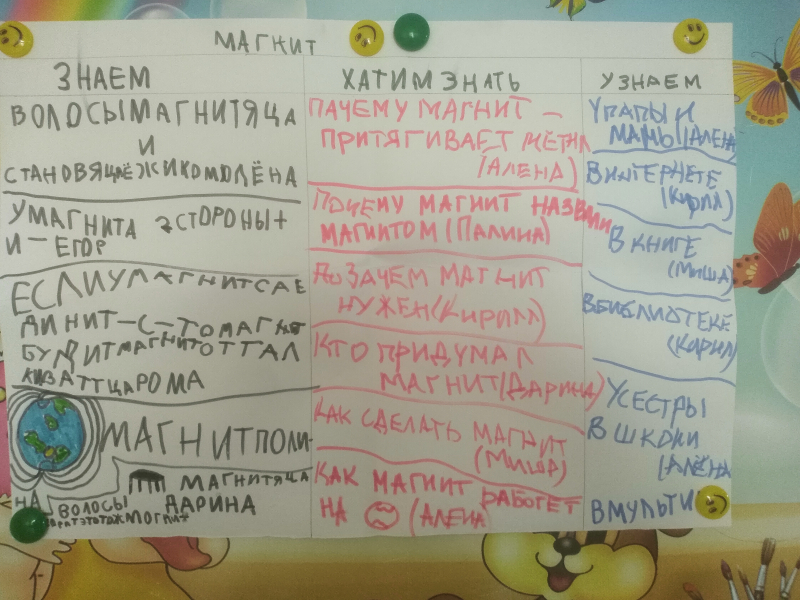 МАГНИТ
ЗНАЕМ
ВОЛОСЫ МАГНИТЯЦА
И
СТАНОВЯЦА ЁЖИКОМ ОЛЁНА
У МАГНИТА 2 СТОРОНЫ +
И — ЕГОР
ЕСЛИ У МАГНИТ САЕ
ДИНИТ — С — ТО МАГНЯТ
БУДИТ МАГНИТ ОТТАЛ
КИВАТТЦА РОМА
МАГНИТ ПОЛИ-
МАГНИТЯЦА
НА ВОЛОСЫ ДАРИНА
ХАТИМ ЗНАТЬ
ПАЧЕМУ МАГНИТ —
ПРИТЯГИВАЕТ
(АЛЕНА)
ПОЧЕМУ МАГНИТ НАЗВАЛИ
МАГНИТОМ (ПАЛИНА)
ЗАЧЕМ МАГНИТ
НУЖЕН (КИРИЛЛ)
КТО ПРИДУМАЛ
МАГНИТ (ДАРИНА)
КАК СДЕЛАТЬ МАГНИТ
(МИША)
КАК МАГНИТ РАБОТЕТ
НА (АЛЕНА)
УЗНАЕМ
У ПАПЫ И
МАМЫ (АЛЕНА)
В ИНТЕРНЕТЕ
(КИРИЛ)
В КНИГЕ
(МИША)
В БИБЛИОТЕКЕ
(КИРИЛ)
У СЕСТРЫ
В ШКОЛИ
(АЛЁНА
В МУЛЬТИ